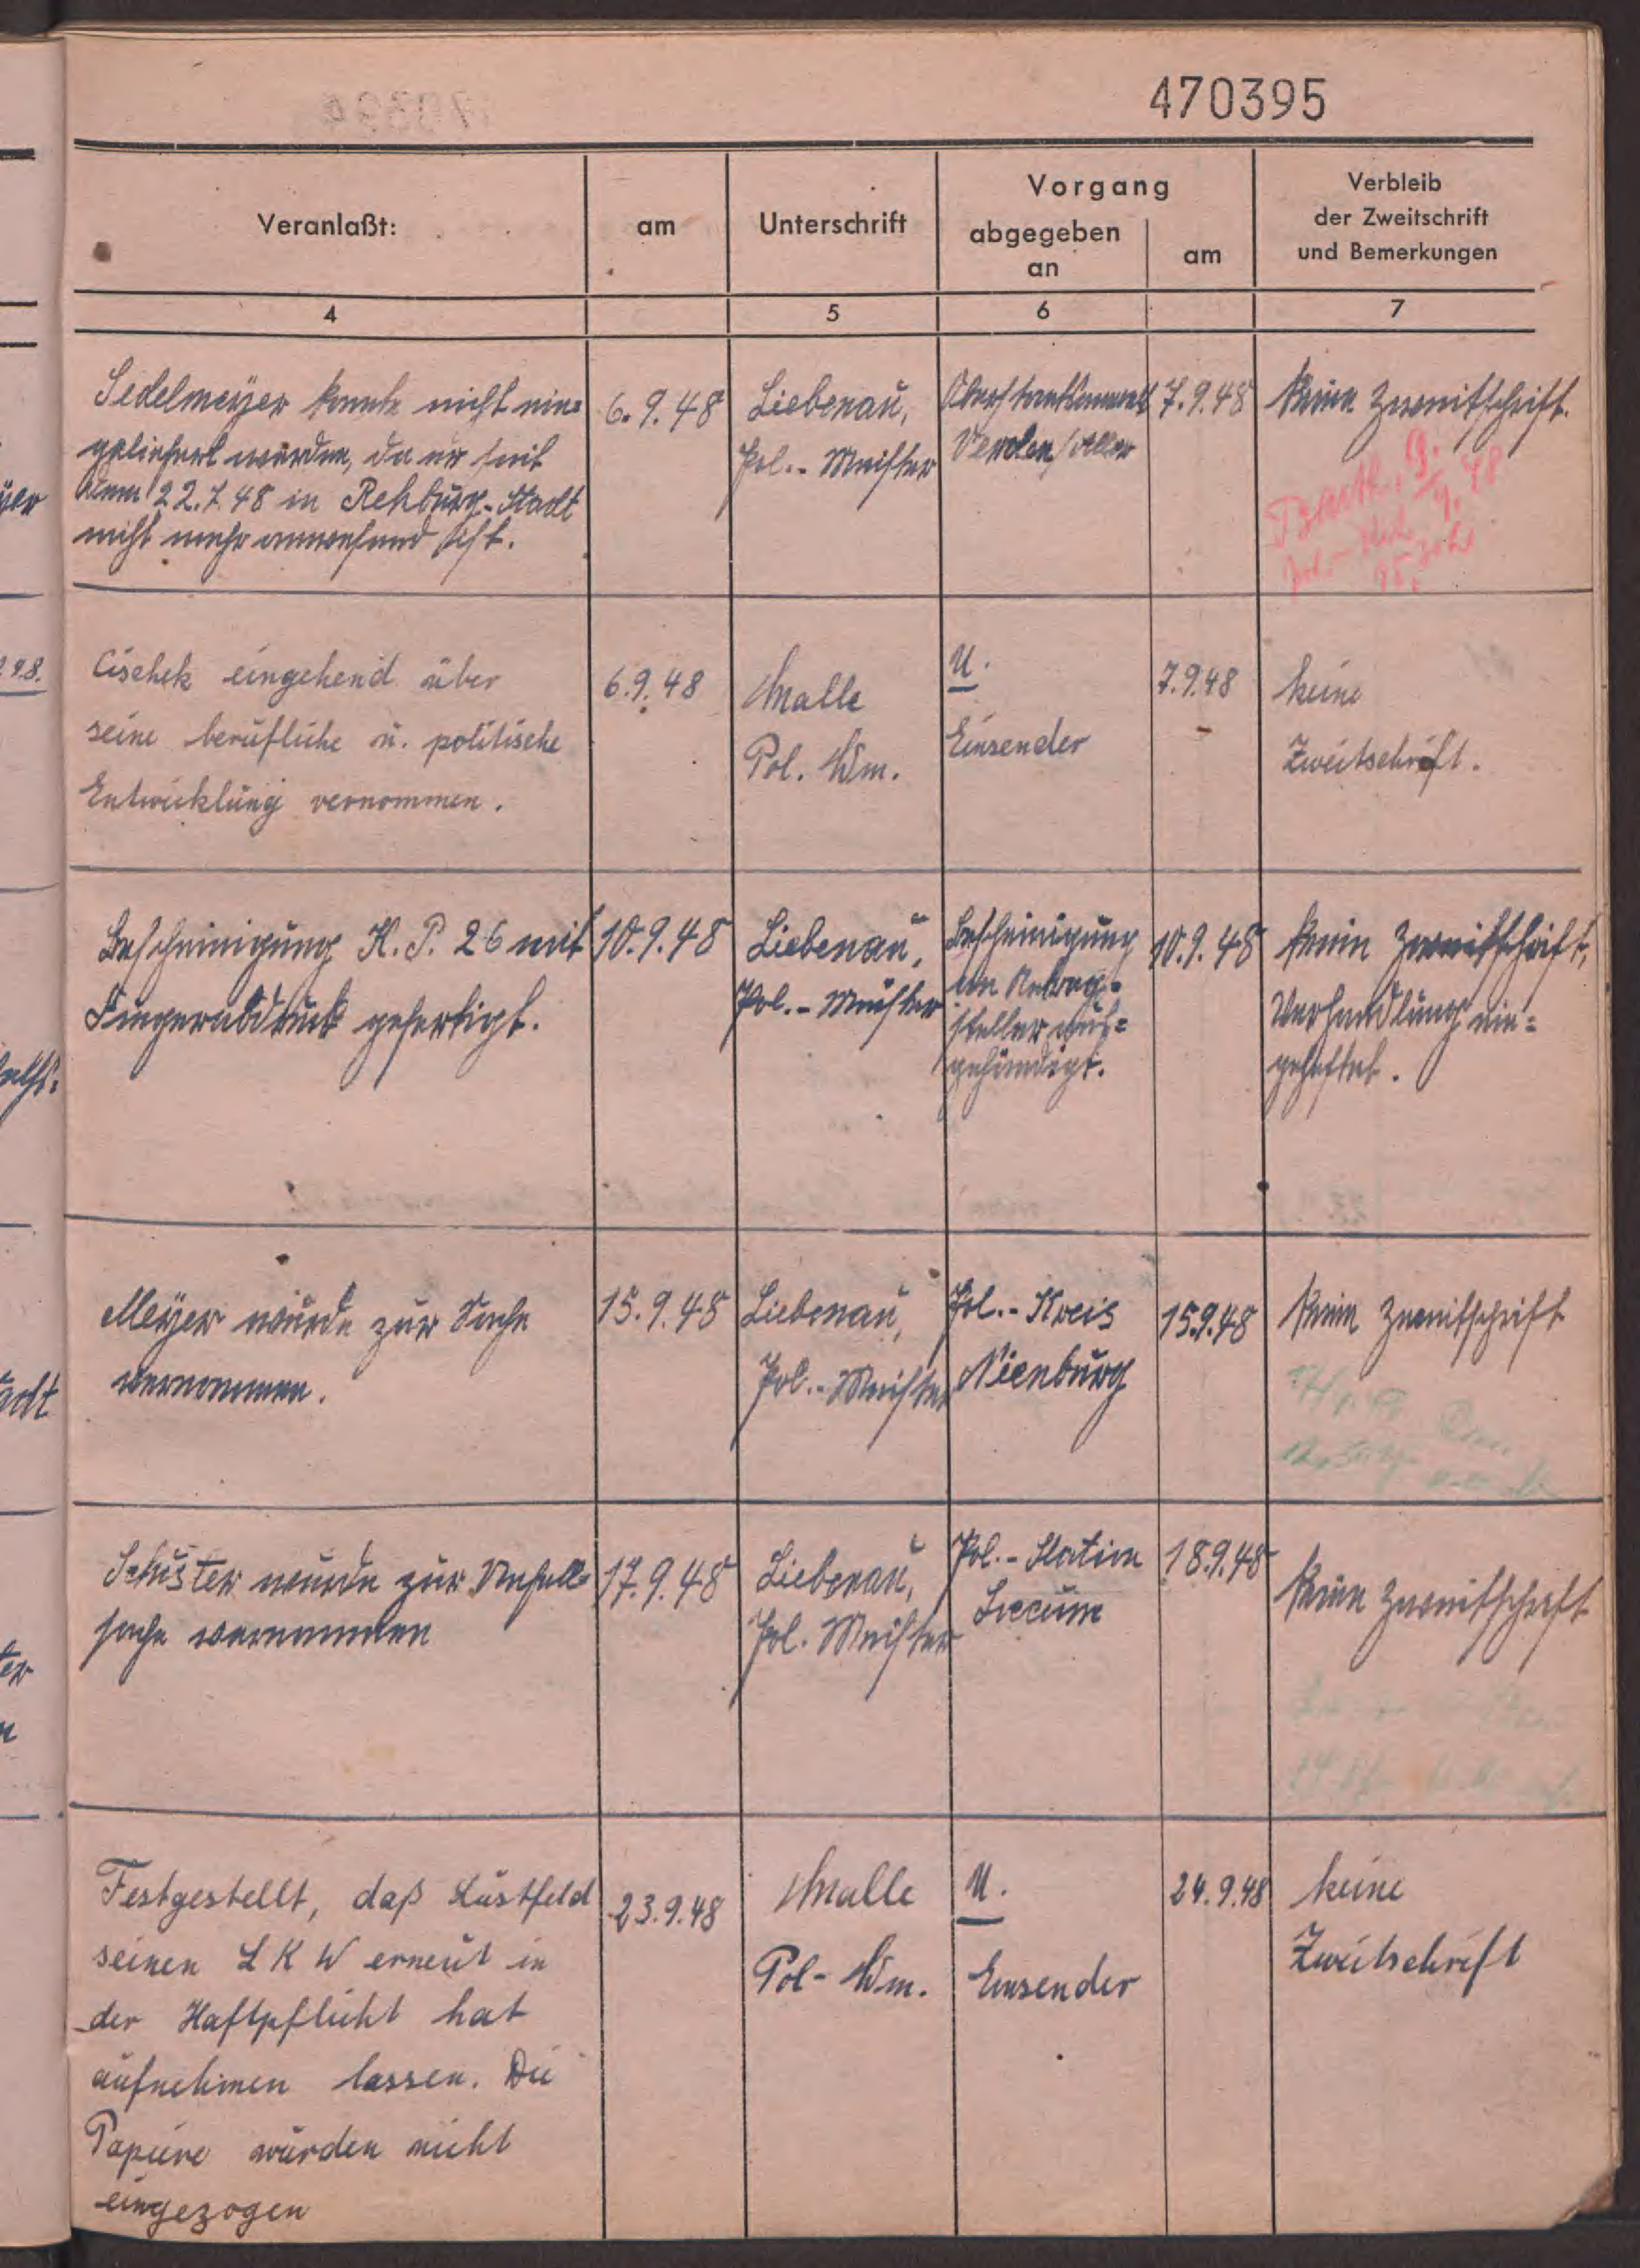 470395
Veranlaßt:
am
Unterschrift
Vorgang
abgegeben
an
am
Verbleib
der Zweitschrift
und Bemerkungen
4
5
6
7
Sedelmeyer konnte nicht ein=
geliefert werden, da er seit
dem 22.7.48 in Rehburg-Stadt
nicht mehr anwesend ist.
6.9.48
Liebenau,
Pol.-Meister
Oberstaatsanwalt
Verden/Aller
7.9.48
Keine Zweitschrift.
9. 48
Cischek eingehend über
seine berufliche u. politische
Entwicklung vernommen.
6.9.48
Malle
Pol. Wm.
U.
Einsender
7.9.48
keine
Zweitschrift.
Bescheinigung K.P. 26 mit
Fingerabdruck gefertigt.
10.9.48
Liebenau,
Pol.-Meister
Bescheinigung
an Antrag=
steller aus=
gehändigt.
10.9.48
Kein Zweitschrift,
Verhandlung ein=
geheftet.
Meyer wurde zur Sache
vernommen.
15.9.48
Liebenau,
Pol.-Meister
Pol.-Kreis
Nienburg
15.9.48
Kein Zweitschrift
Schuster wurde zur Unfall=
sache vernommen
17.9.48
Liebenau,
Pol. Meister
Pol.-Station
Loccum
18.9.48
Keine Zweitschrift
Festgestellt, daß Lustfeld
seinen LKW erneut in
der Haftpflicht hat
aufnehmen lassen. Die
Papiere wurden nicht
eingezogen
23.9.48
Malle
Pol-Wm.
U.
Einsender
24.9.48
keine
Zweitschrift